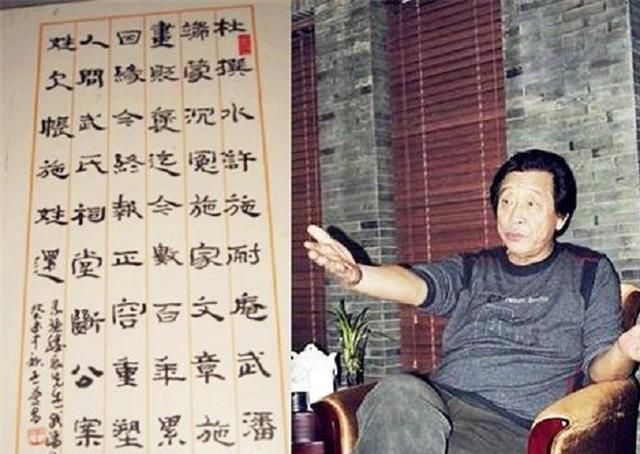 杜撰水滸施耐庵武潘
端蒙沉冤施家文章施
畫貶褒迄今數百年累
回緣今終報正容重塑
人間武氏祠堂斷公案
姓欠帳施姓還